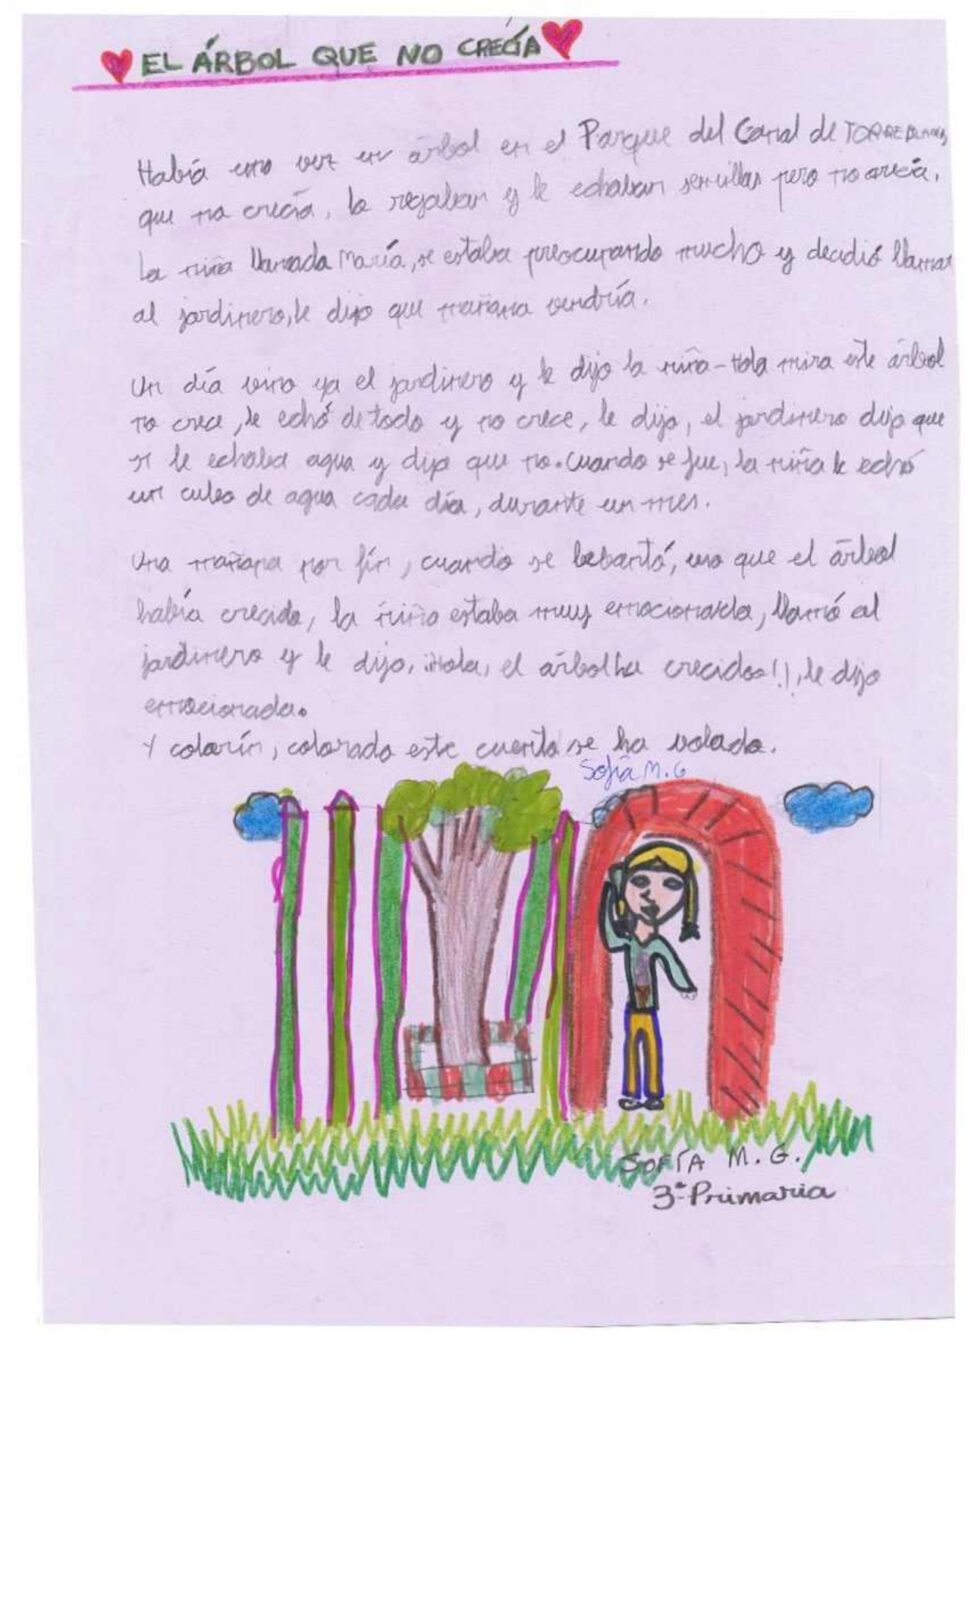 EL ÁRBOL QUE NO CRECÍA
Había una vez un árbol en el Parque del Canal de TORREBLANCA,
que no crecía, lo regaban y le echaban semillas pero no crecía.
La niña llamada María, se estaba preocupando mucho y decidió llamar
al jardinero, le dijo que mañana vendría.
Un día vino ya el jardinero y le dijo la niña-Hola mira este árbol
no crece, le echó de todo y no crece, le dijo, el jardinero dijo que
si le echaba agua y dijo que no. Cuando se fue, la niña le echó
un cubo de agua cada día, durante un mes.
Una mañana por fín, cuando se lebantó, vio que el árbol
había crecido, la niña estaba muy emocionada, llamó al
jardinero y le dijo, ¡¡Hola, el árbol ha crecidoo!!, le dijo
emocionada.
Y colorín, colorado este cuento se ha volado.
Sofía M. G
SOFÍA M. G.
3º Primaria